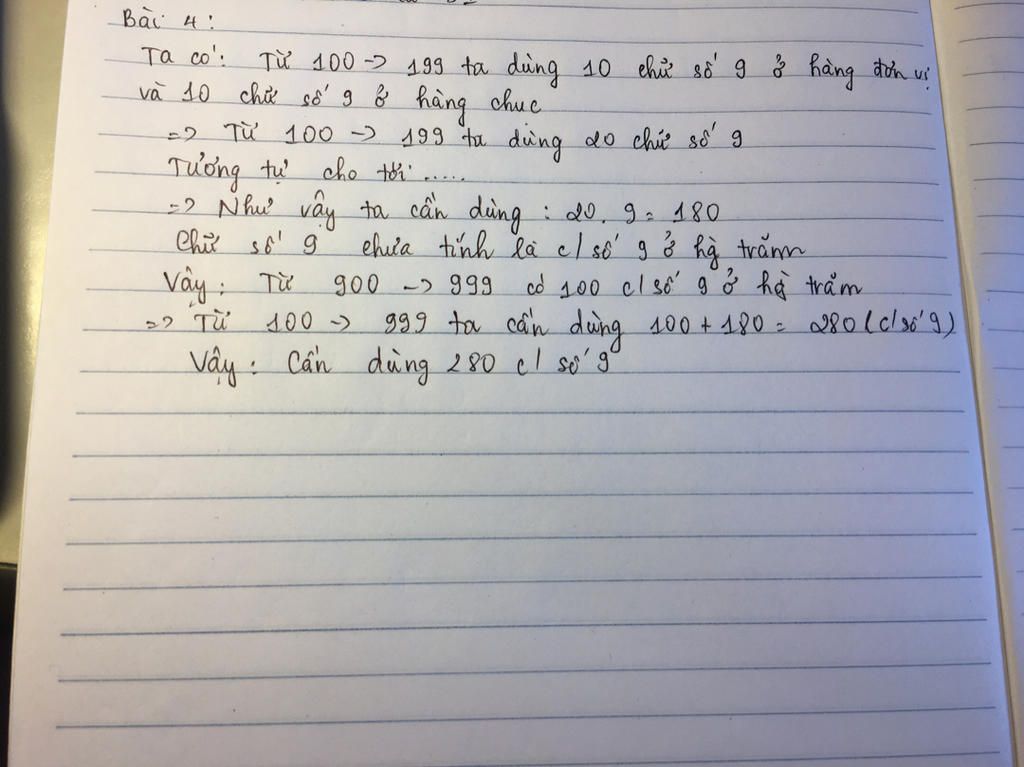 Bài 4:
Ta có: Từ 100 -> 199 ta dùng 10 chữ số 9 ở hàng đơn vị
và 10 chữ số 9 ở hàng chục
=> Từ 100 -> 199 ta dùng 20 chữ số 9
Tương tự cho tới .....
=> Như vậy ta cần dùng : 20. 9 = 180
Chữ số 9 chưa tính là c/số 9 ở hg̀ trăm
Vậy: Từ 900 -> 999 có 100 c/số 9 ở hg̀ trăm
=> Từ 100 -> 999 ta cần dùng 100 + 180 = 280 (c/số 9)
Vậy: Cần dùng 280 c/ số 9